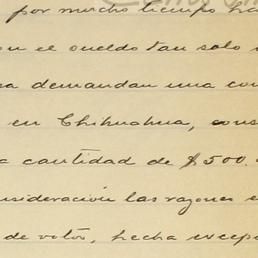 por mucho tiempo ha
on el sueldo tan solo
sa demandan una con
en Chihuahua, cons
a cantidad de $500.
nsideración las razones e
de votos, hecha excep